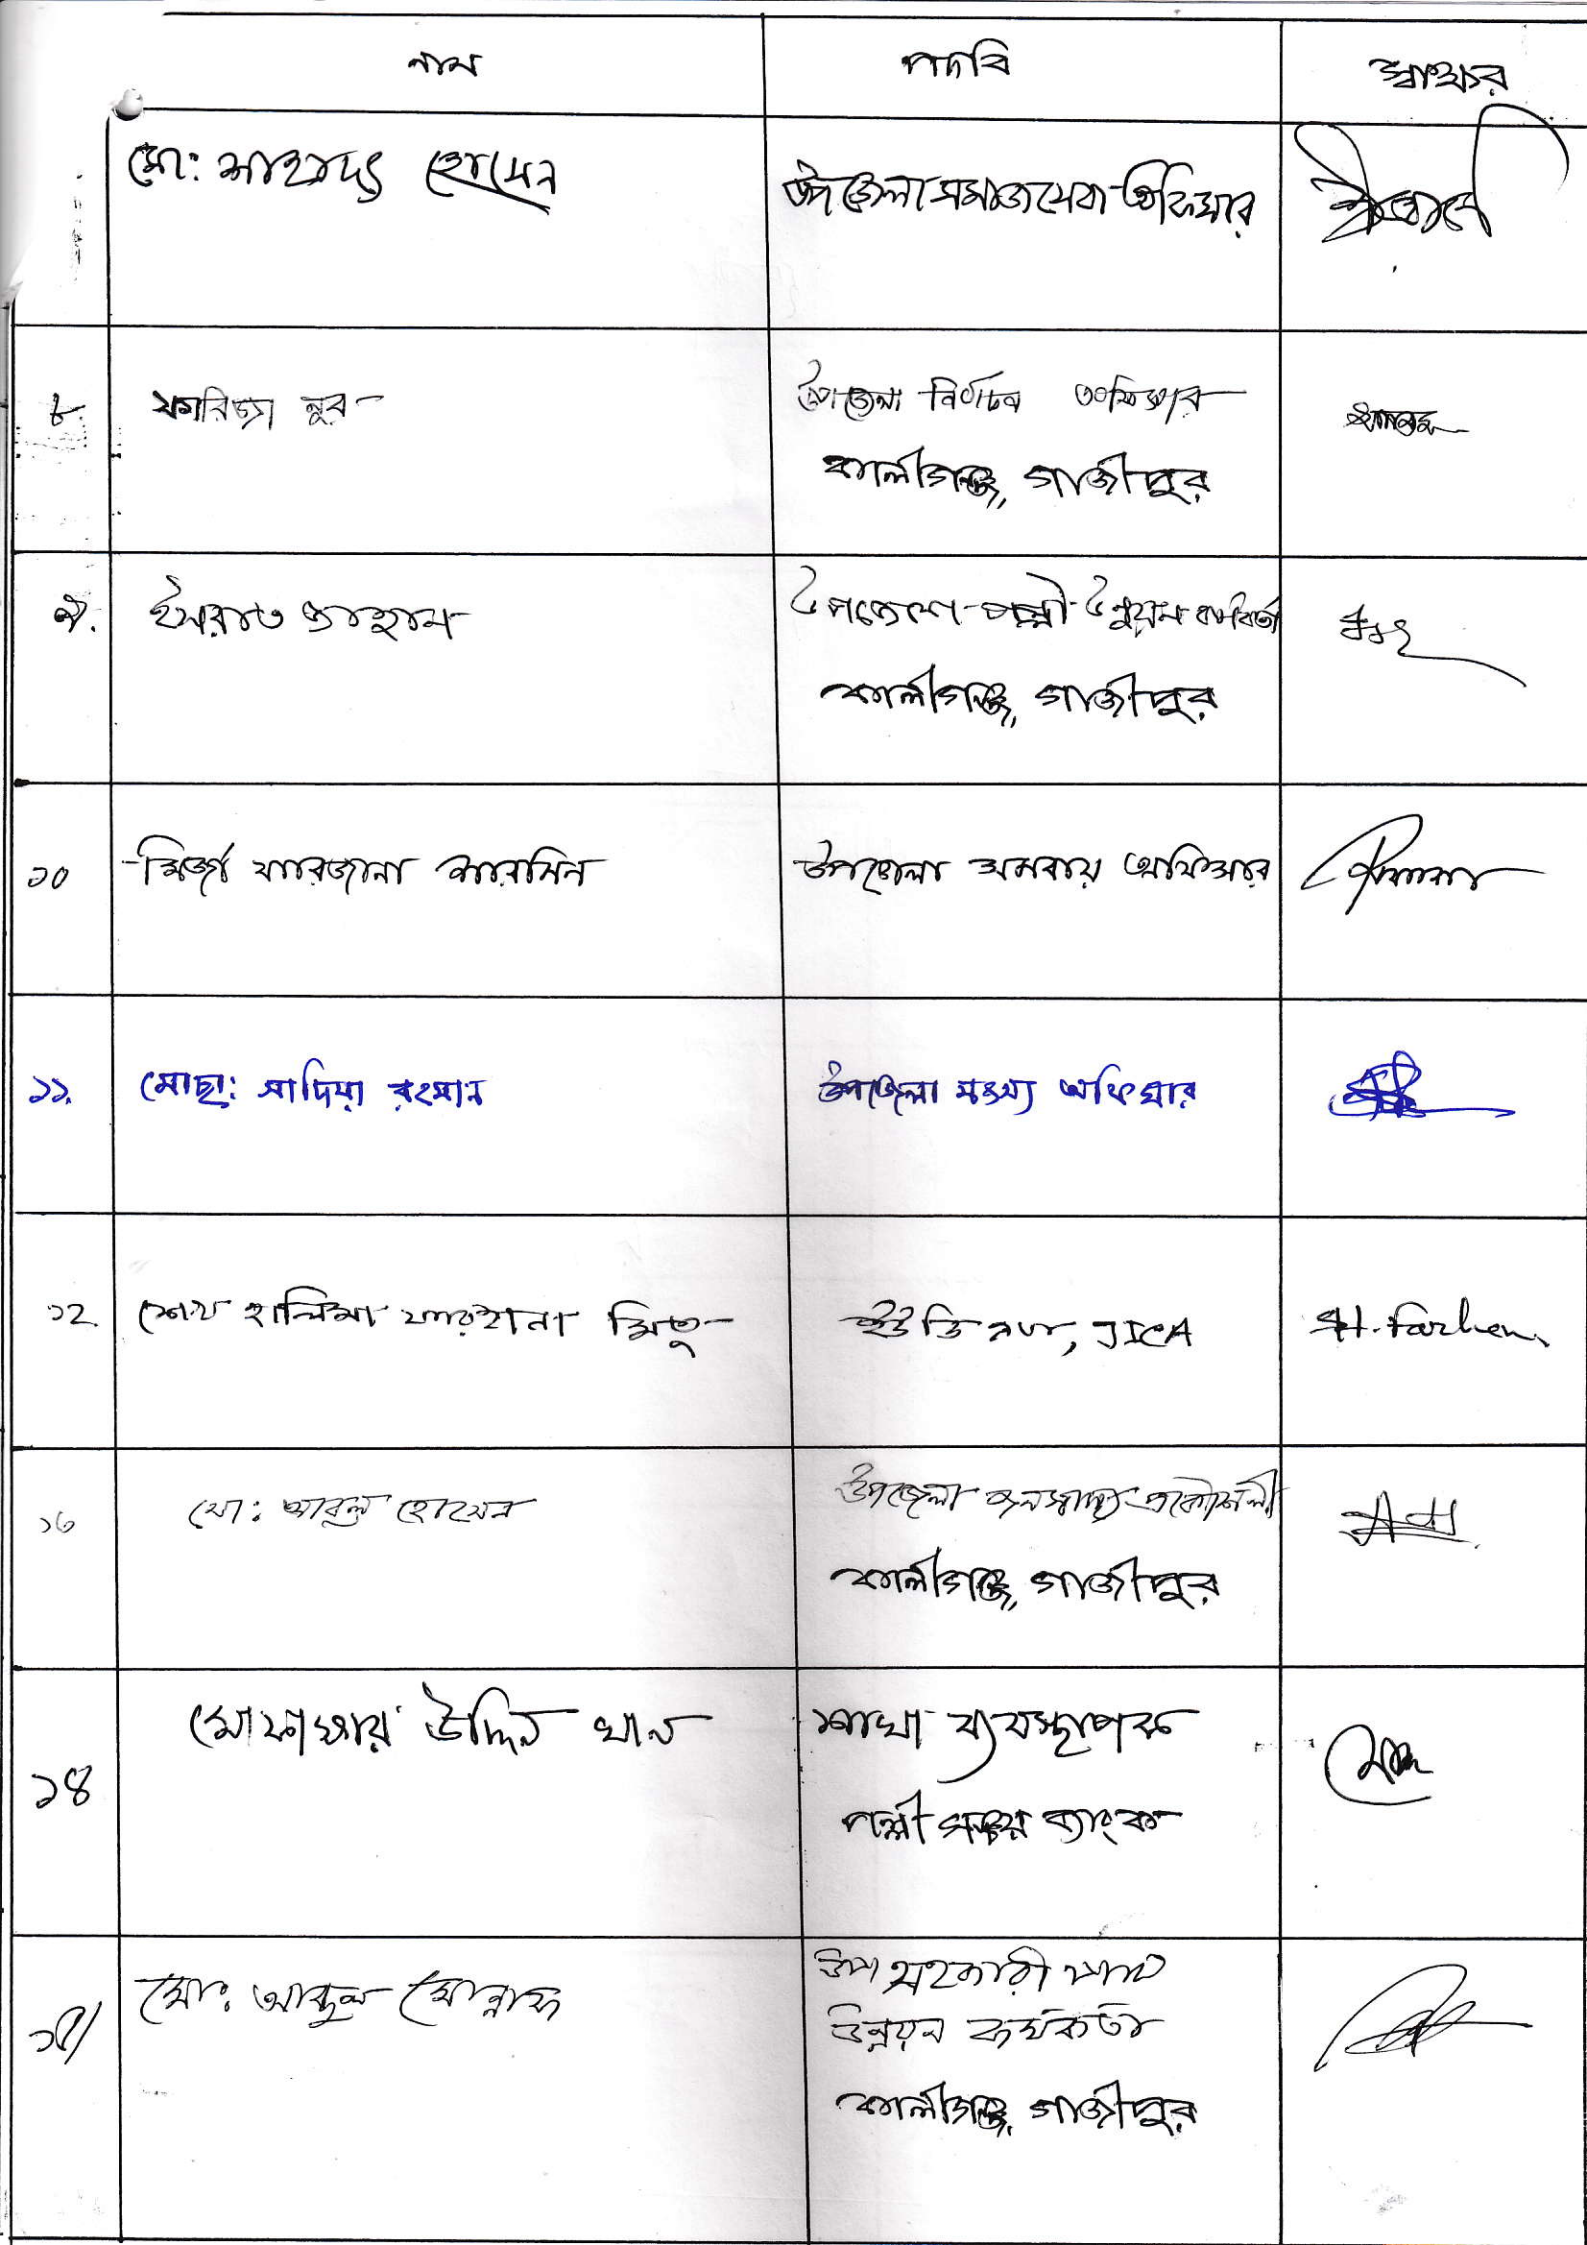 নাম পদবি স্বাক্ষর
মো: শাহাদৎ হোসেন উপজেলা সমাজসেবা অফিসার
৮. ফারিজা নুর উপজেলা নির্বাচন অফিসার
কালীগঞ্জ, গাজীপুর
৯. ইসরাত জাহান উপজেলা পল্লী উন্নয়ন কর্মকর্তা
কালীগঞ্জ, গাজীপুর
১০ মির্জা ফারজানা শারমিন উপজেলা সমবায় অফিসার
১১. মোছা: সাদিয়া রহমান উপজেলা মৎস্য অফিসার
১২. শেখ হালিমা ফারহানা মিতু ইউডিএফ, JICA
১৩ মো: আবুল হোসেন উপজেলা জনস্বাস্থ্য প্রকৌশলী
কালীগঞ্জ, গাজীপুর
১৪ উদ্দিন খান শাখা ব্যবস্থাপক
পল্লী সঞ্চয় ব্যাংক
১৫/ মো: আব্দুল মোন্নাফ উপ সহকারী পাট
উন্নয়ন কর্মকর্তা
কালীগঞ্জ, গাজীপুর